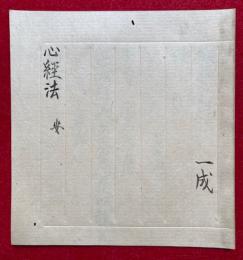 心經法
一成